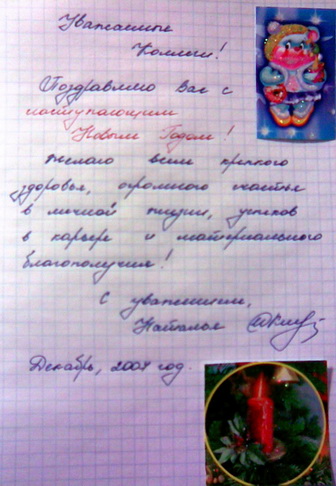 Уважаемые
Коллеги!
Поздравляю Вас с
наступающим
Новым Годом!
Желаю всем крепкого
здоровья, огромного счастья
в личной жизни, успехов
в карьере и материального
благополучия!
С уважением,
Наталья
Декабрь, 2007 год.